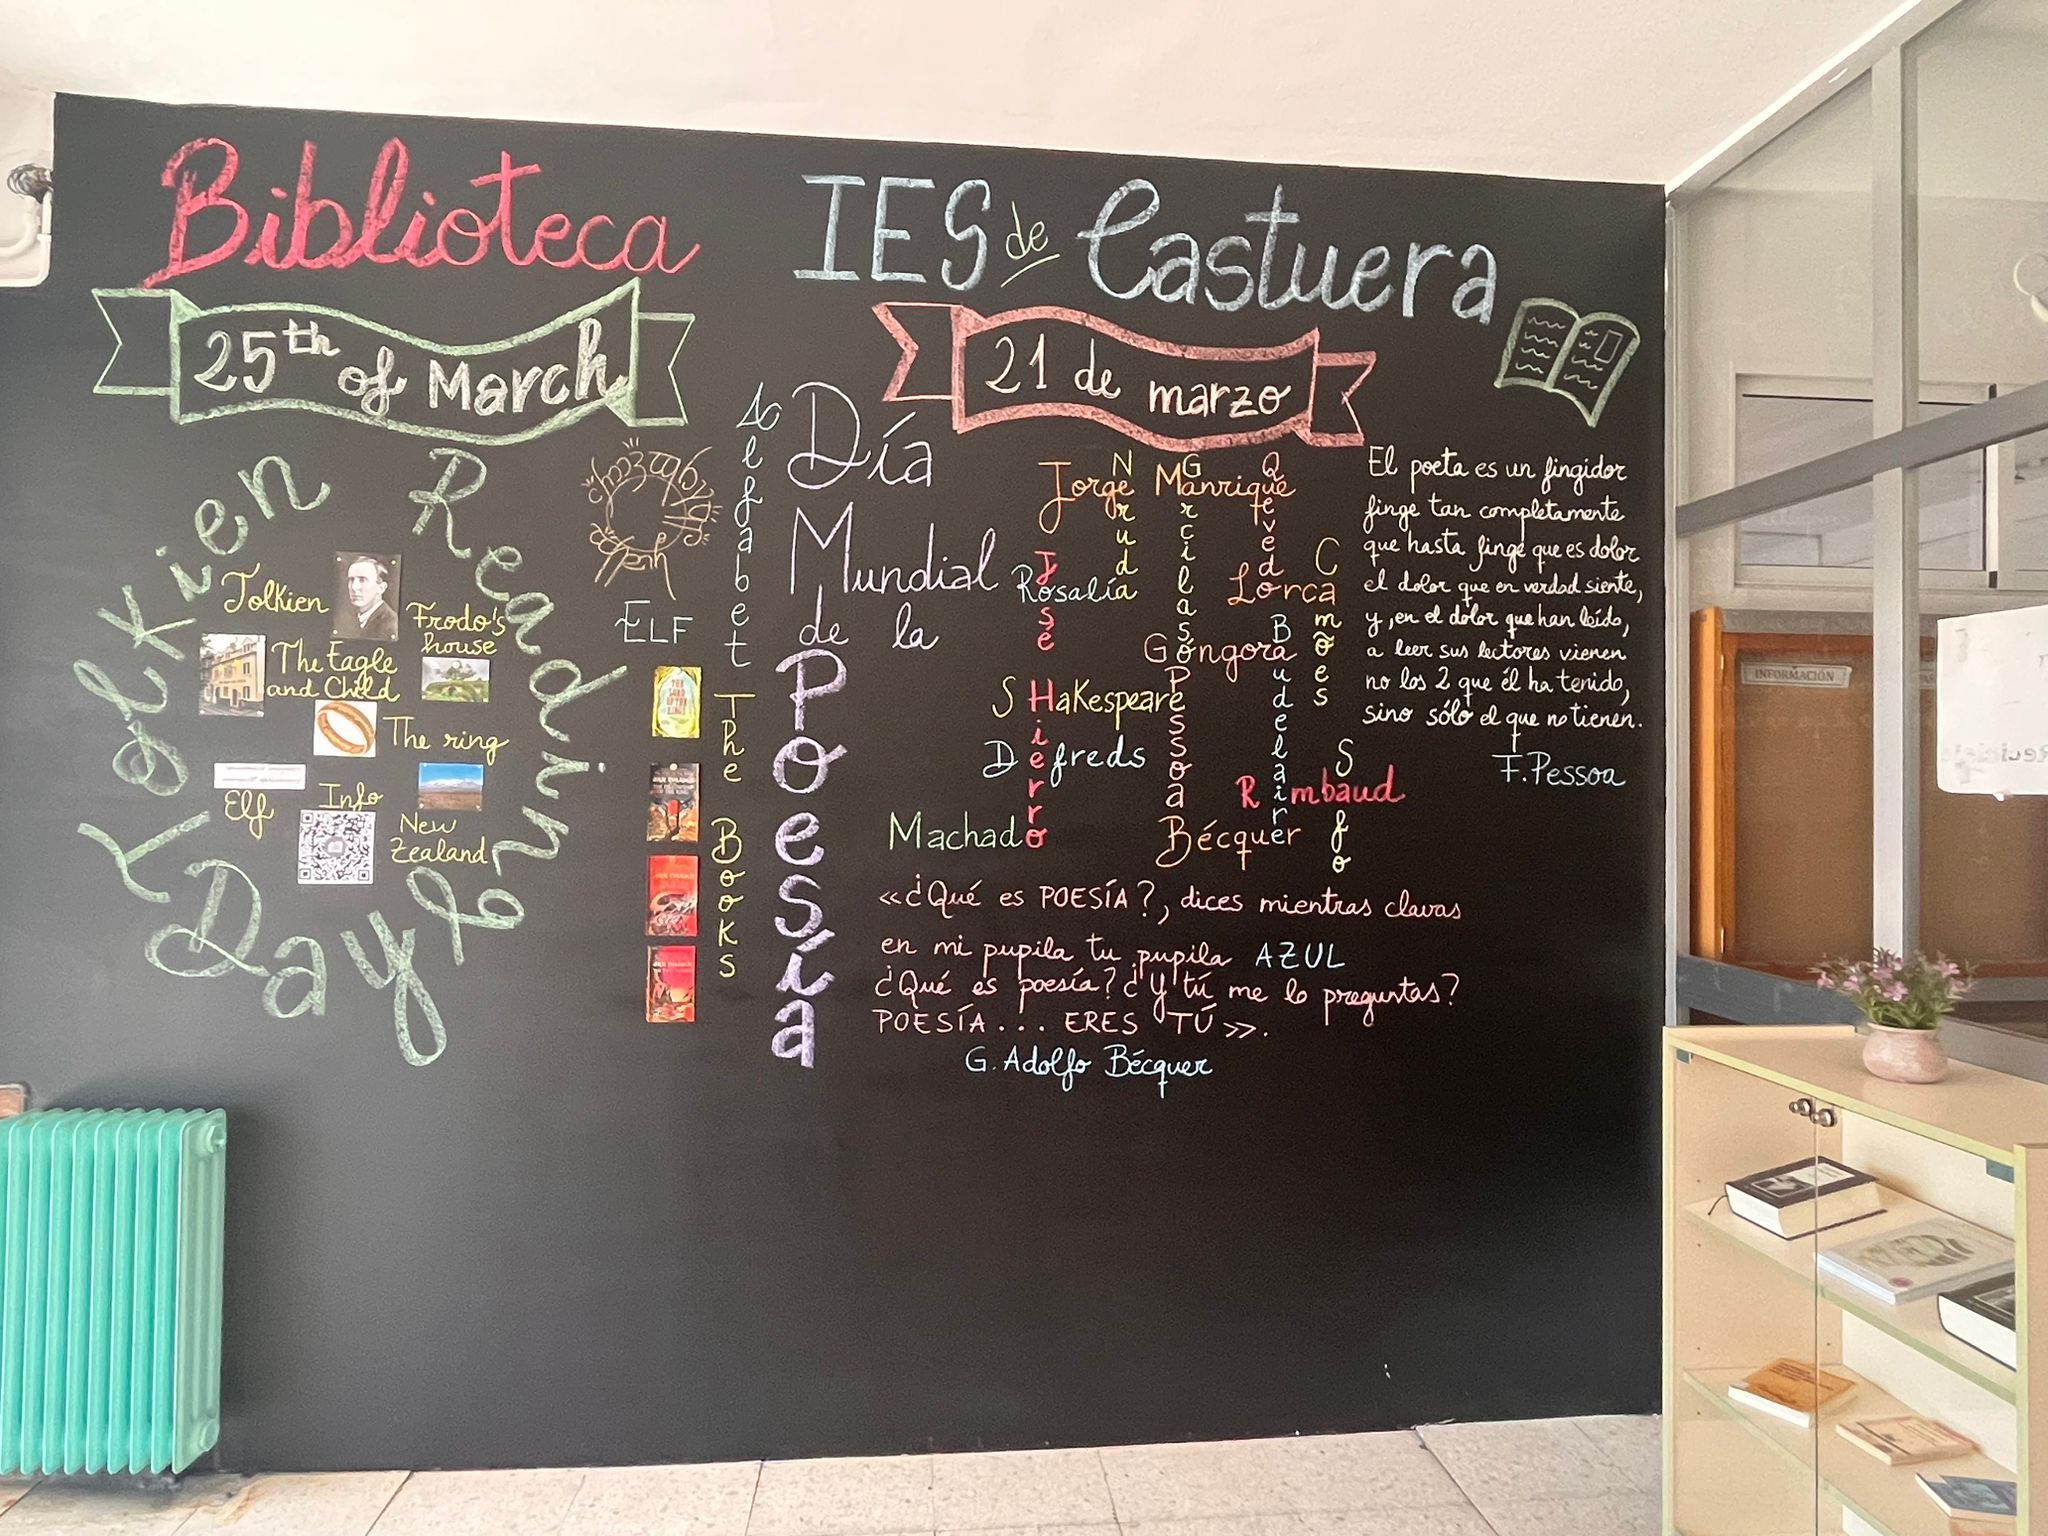 Biblioteca
IES de Castuera
25th of March
Tolkien Reading Day
Tolkien
Frodo's house
The Eagle and Child
The ring
Elf
Info
New Zealand
ELF
Alfabet
The Books
21 de marzo
Día
Mundial
de la
Poesía
Jorge Manrique
Neruda
Garcilaso
Quevedo
José Hierro
Rosalía
Lorca
Camões
Góngora
Baudelaire
Shakespeare
Pessoa
Defreds
Rimbaud
Safo
Machado
Bécquer
El poeta es un fingidor
finge tan completamente
que hasta finge que es dolor
el dolor que en verdad siente,
y, en el dolor que han leído,
a leer sus lectores vienen
no los 2 que él ha tenido,
sino sólo el que no tienen.
F. Pessoa
«¿Qué es POESÍA?, dices mientras clavas
en mi pupila tu pupila AZUL
¿Qué es poesía? ¿Y tú me lo preguntas?
POESÍA... ERES TÚ».
G. Adolfo Bécquer
INFORMACIÓN